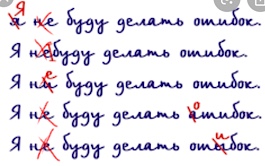 Я я не буду делать ошибок.
Я нЯбуду делать ошибок.
Я ни е буду делать ошибок.
Я не буду делать ашибок. о
Я не буду делать ошыбок. и